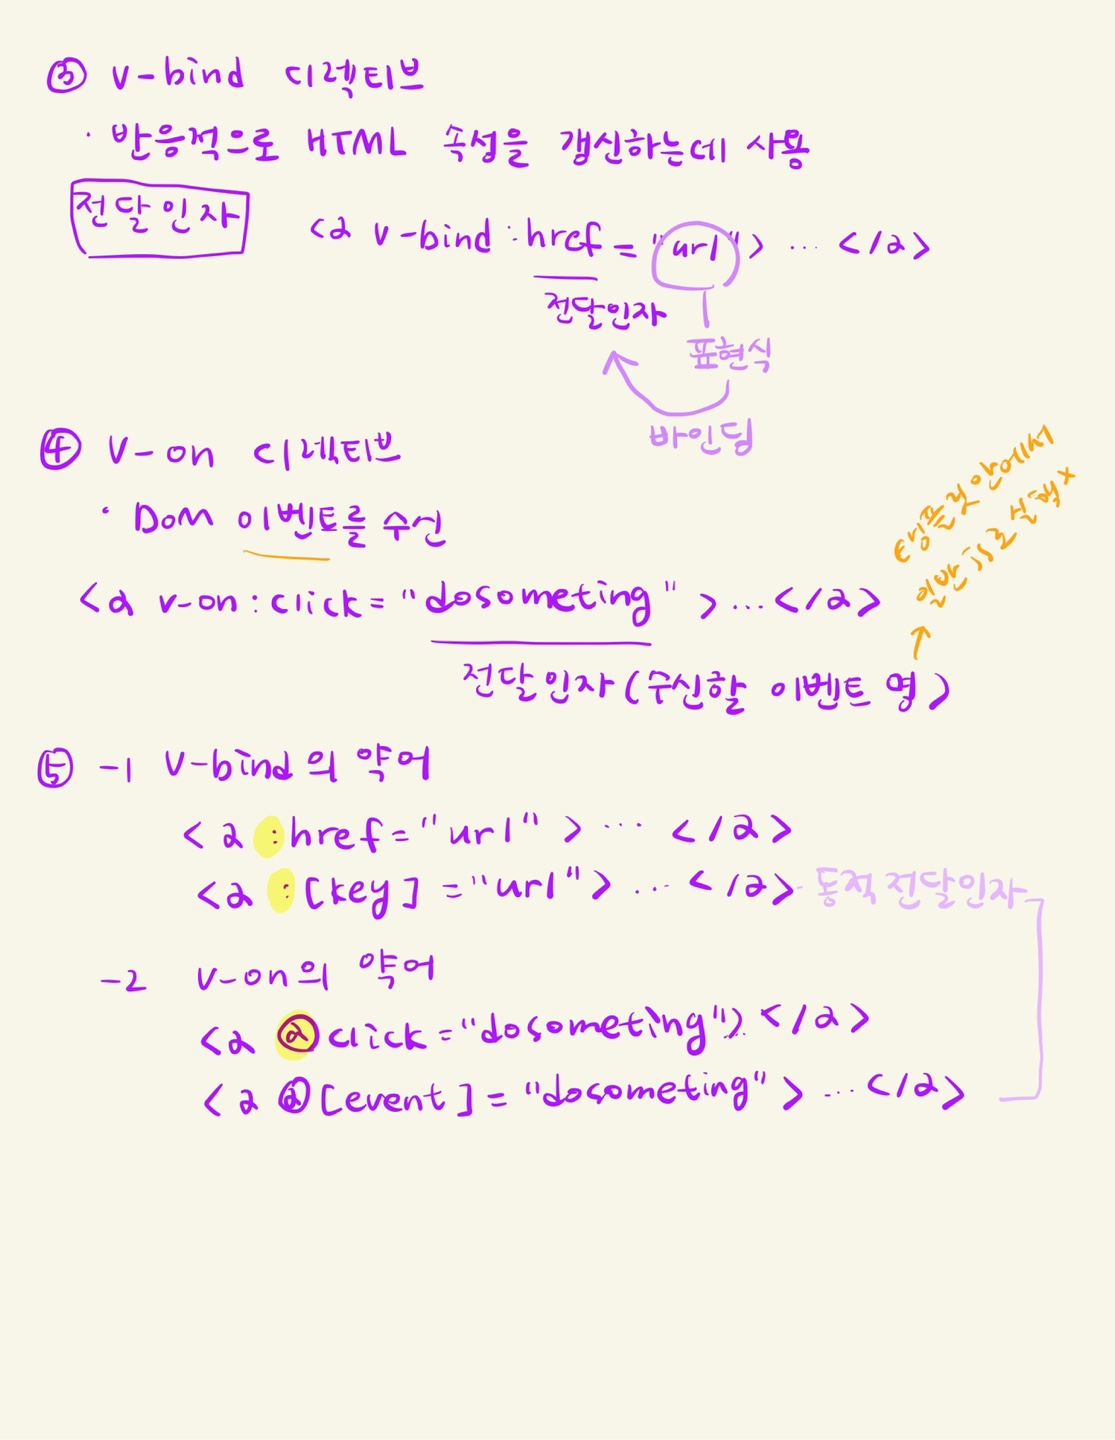 ③ v-bind 디렉티브
· 반응적으로 HTML 속성을 갭신하는데 사용
전달인자
<a v-bind:href="url"> ... </a>
전달인자
표현식
바인딩
④ v-on 디렉티브
· DOM 이벤트를 수신
템플릿 안에서
일반 js로 실행 x
<a v-on:click="dosometing">...</a>
↑
전달인자(수신할 이벤트 명)
⑤ -1 v-bind의 약어
<a :href="url"> ... </a>
<a :[key]="url"> ... </a> - 동적 전달인자
-2 v-on의 약어
<a @click="dosometing">. </a>
<a @[event]="dosometing"> ... </a>